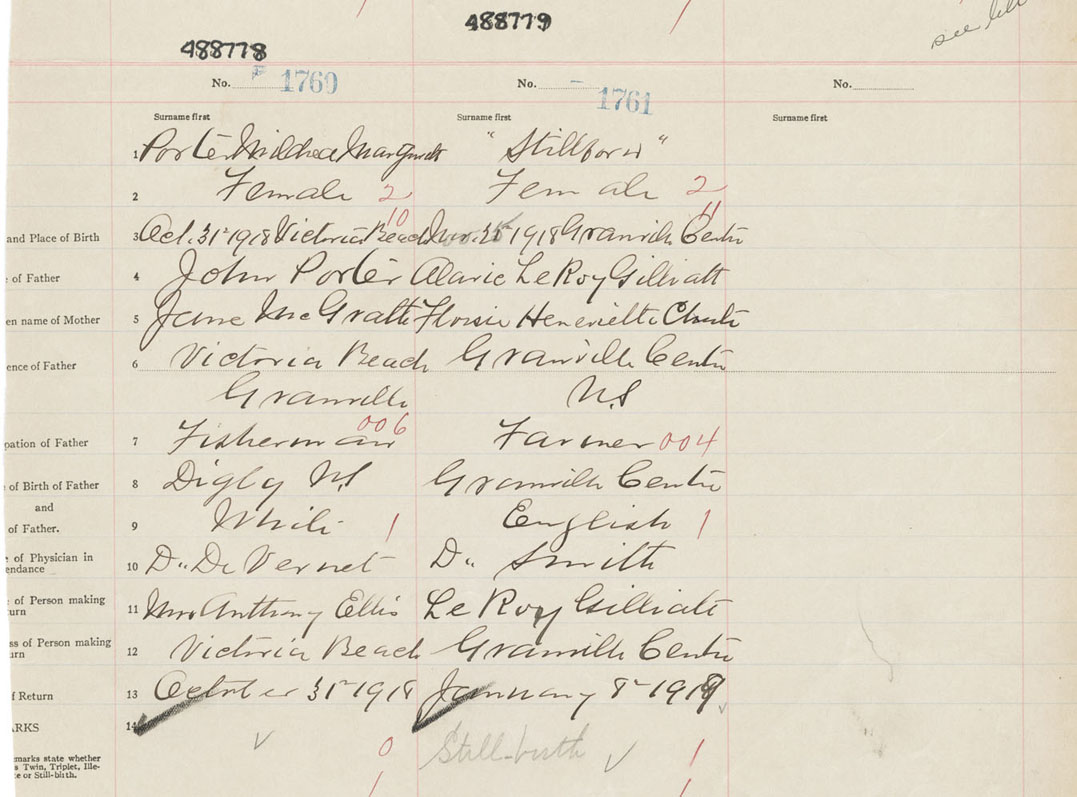 488779
488778
see
No. F 1760
No. - 1761
No.
Surname first
Surname first
Surname first
1 Porter Mildred Margaret "Stillborn"
2 Female 2 Female 2
10 11
and Place of Birth 3 Oct. 31st 1918 Victoria Beach 1918 Granville Centre
of Father 4 John Porter Alaric LeRoy Gilliatt
en name of Mother 5 Jane McGrath Henerietta Chute
ence of Father 6 Victoria Beach Granville Centre
Granville N.S
pation of Father 7 Fisherman 006 Farmer 004
of Birth of Father 8 Digby N.S Granville Centre
and
of Father. 9 White 1 English 1
e of Physician in
endance 10 Dr. De Vernet Dr. Smith
of Person making
turn 11 Mrs Anthony Ellis Le Roy Gilliatt
ss of Person making
urn 12 Victoria Beach Granville Centre
of Return 13 October 31st 1918 January 8th 1919
ARKS 14
marks state whether
s Twin, Triplet, Ille-
e or Still-birth.
0 Still-birth 1
1 1